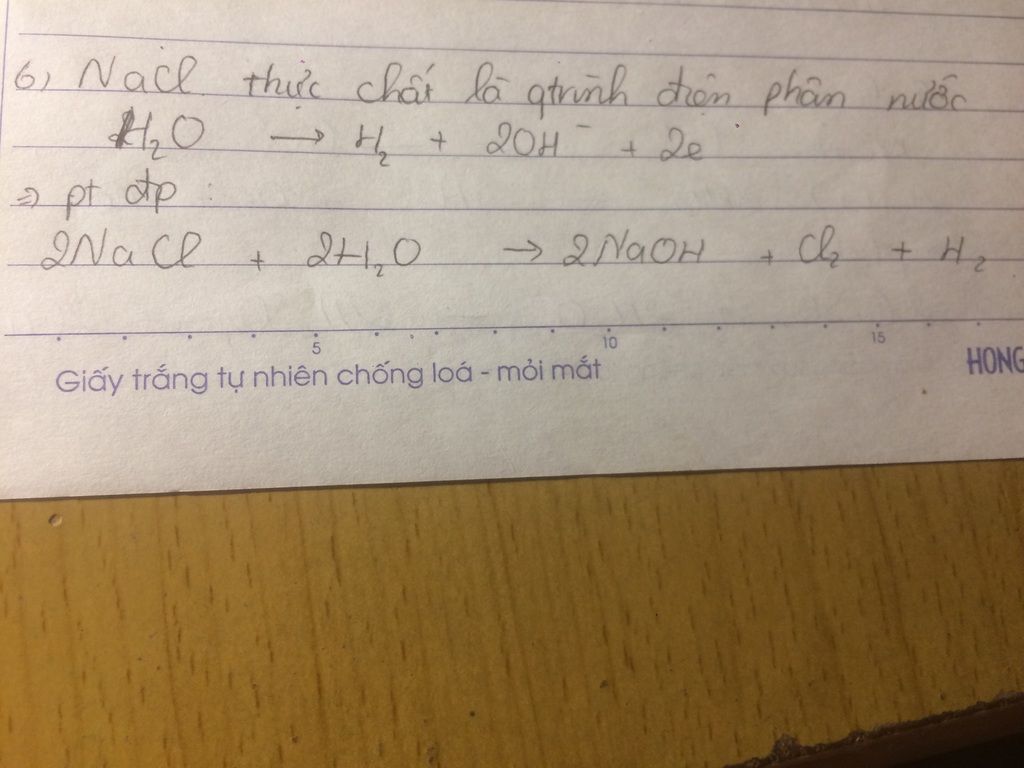 6, NaCl thực chất là qtrình điện phân nước
H₂O → H₂ + 2OH⁻ + 2e
⇒ pt đp :
2NaCl + 2H₂O → 2NaOH + Cl₂ + H₂
5 10 15
Giấy trắng tự nhiên chống loá - mỏi mắt HONG